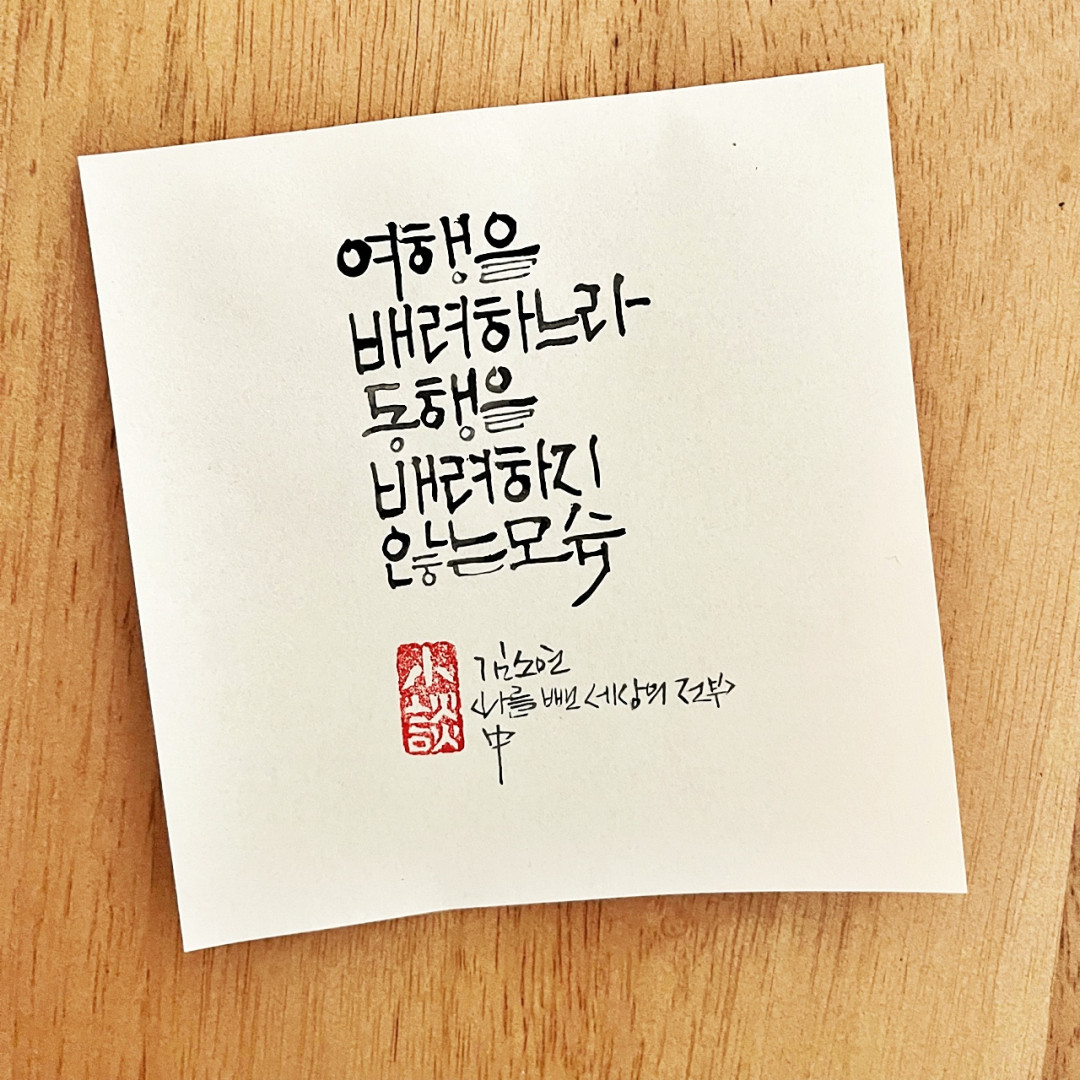 여행을
배려하느라
동행을
배려하지
않는모습
小談
김소연
<나를 뺀 세상의 전부>
中